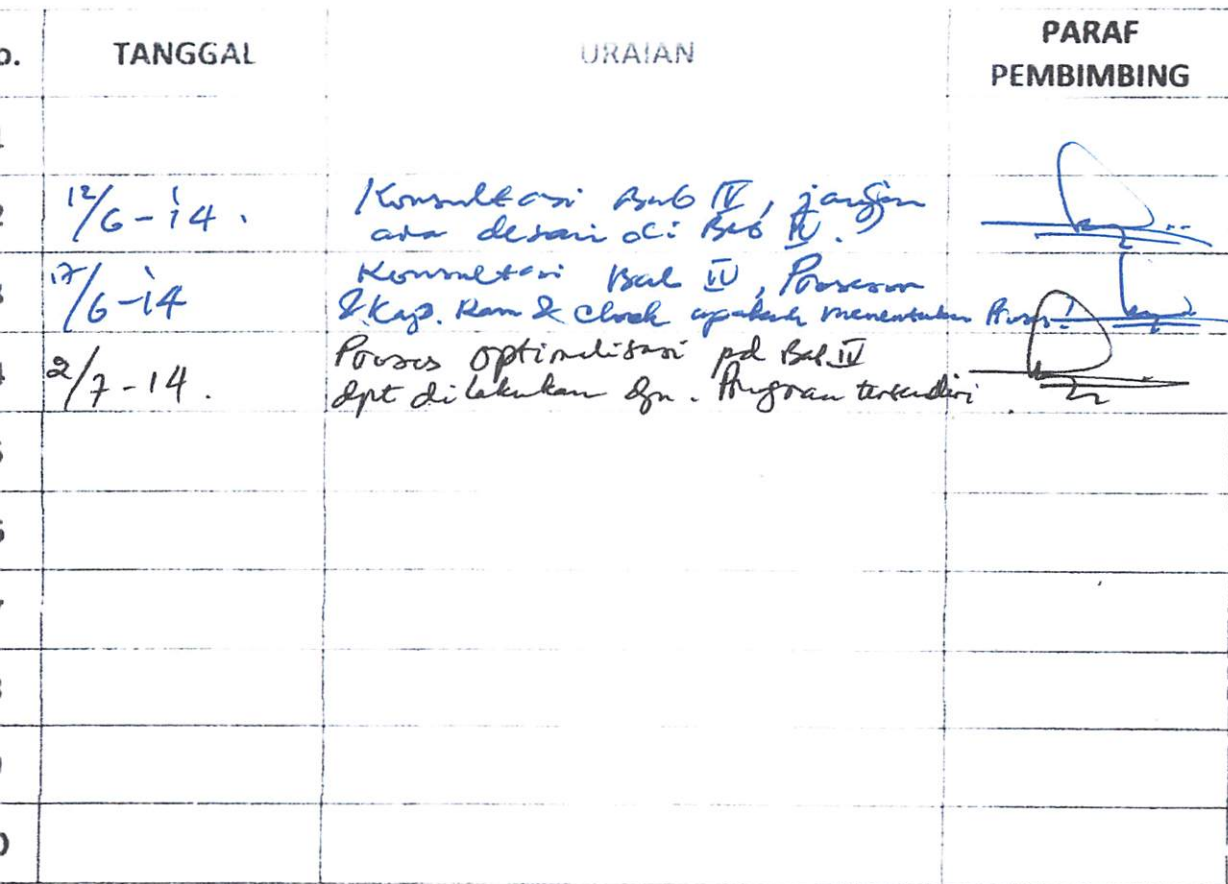 TANGGAL URAIAN PARAF
PEMBIMBING
12/6-14. Konsultasi Bab IV, jangan
ada desain di Bab IV.
17/6-14 Konsultasi Bab IV, Prosesor
& Kap. Ram & Clock apakah menentukan
2/7-14. Proses optimalisasi pd Bab IV
dpt dilakukan dgn. Program tersendiri